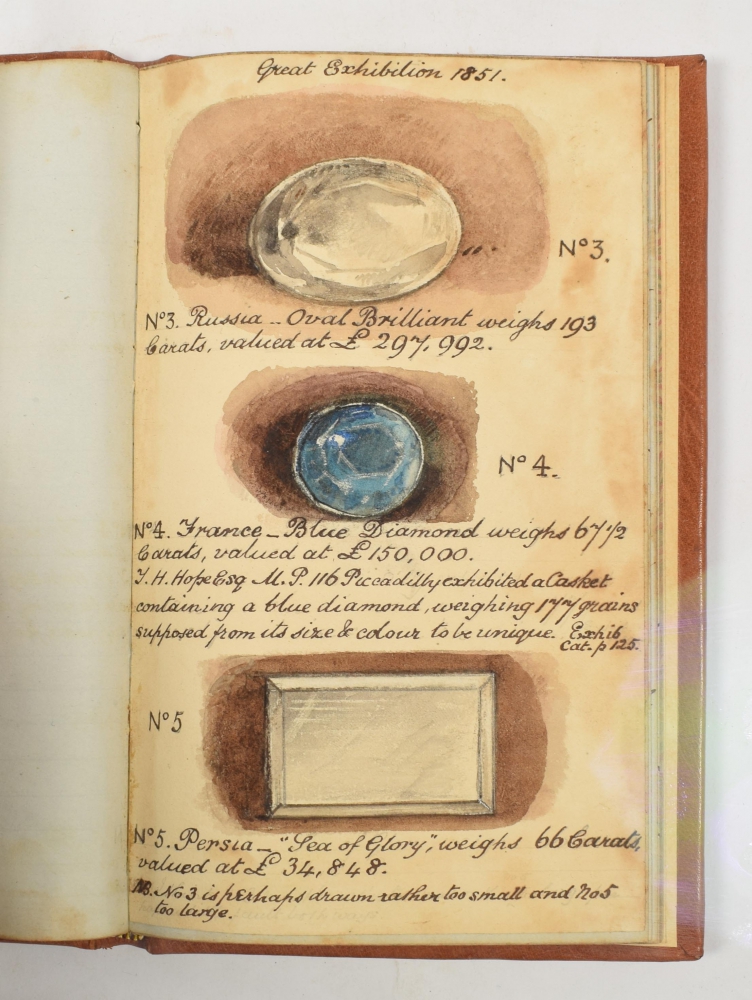 Great Exhibition 1851.
No3.
No3. Russia - Oval Brilliant weighs 193
Carats, valued at £ 297,992.
No4.
No4. France - Blue Diamond weighs 67 1/2
Carats, valued at £150,000.
T. H. Hope Esq M. P. 116 Piccadilly exhibited a Casket
containing a blue diamond, weighing 177 grains
supposed from its size & colour to be unique. Exhib
Cat. p 125.
No5
No5. Persia - "Sea of Glory", weighs 66 Carats,
valued at £ 34,848.
NB. No 3 is perhaps drawn rather too small and No5
too large.